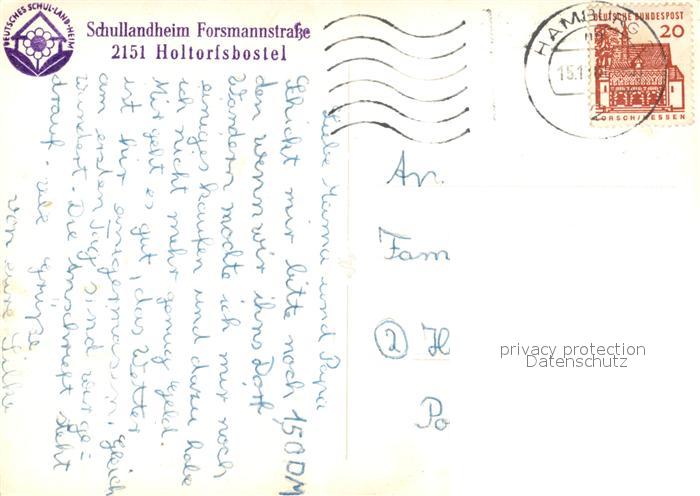 DEUTSCHES SCHUL-LAND-HEIM
Schullandheim Forsmannstraße
2151 Holtorfsbostel
Liebe Mama und Papa
Schickt mir bitte noch 1,50 DM
den wenn wir ihns Dorf
Wandern möchte ich mir noch
einiges kaufen und dazu habe
ich nicht mehr genug Geld.
Mir geht es gut, das Wetter
ist hir einigermassen, gleich
am ersten Tag sind wir ge-
wandert. Die Anschrieft steht
drauf. viele grüße
von eure Silke
HAMBURG
15.1
DEUTSCHE BUNDESPOST
20
LORSCH/HESSEN
An
Fam
2 H
Po
privacy protection
Datenschutz